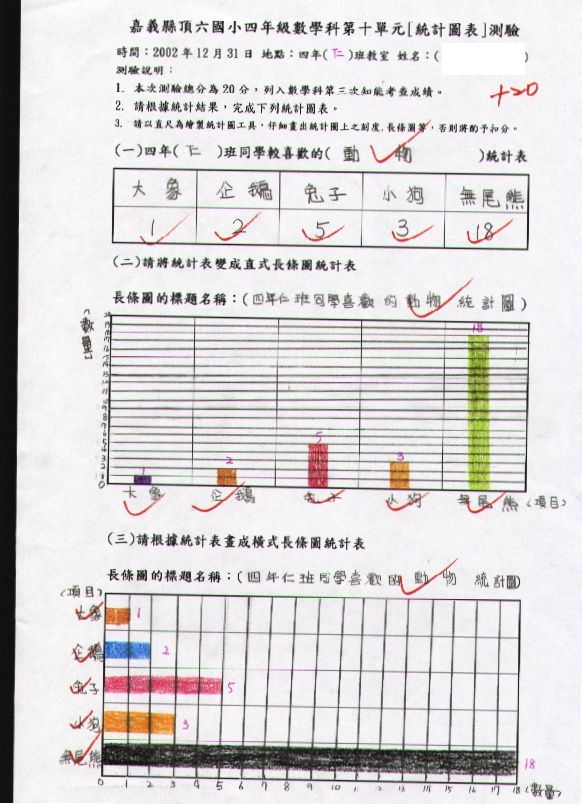 嘉義縣頂六國小四年級數學科第十單元[統計圖表]測驗
時間：2002年12月31日 地點：四年(仁)班教室 姓名：( )
測驗說明：
+20
1. 本次測驗總分為20分，列入數學科第三次知能考查成績。
2. 請根據統計結果，完成下列統計圖表。
3. 請以直尺為繪製統計圖工具，仔細畫出統計圖上之刻度.長條圖等，否則將酌予扣分。
(一)四年(仁)班同學較喜歡的(動物)統計表
大象 企鵝 兔子 小狗 無尾熊
1 2 5 3 18
(二)請將統計表變成直式長條圖統計表
長條圖的標題名稱：(四年仁班同學喜歡的動物統計圖)
(數量)
18
5
3
2
1
大象 企鵝 兔子 小狗 無尾熊 (項目)
(三)請根據統計表畫成橫式長條圖統計表
長條圖的標題名稱：(四年仁班同學喜歡的動物統計圖)
(項目)
大象 1
企鵝 2
兔子 5
小狗 3
無尾熊 18
0 1 2 3 4 5 6 7 8 9 10 11 12 13 14 15 16 17 18 (數量)